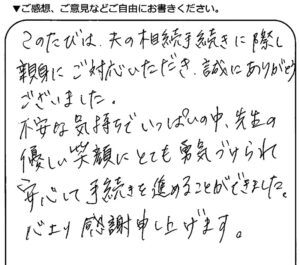 ▼ご感想、ご意見などご自由にお書きください。
このたびは、夫の相続手続きに際し
親身にご対応いただき、誠にありがとう
ございました。
不安な気持ちでいっぱいの中、先生の
優しい笑顔にとても勇気づけられ
安心して手続きを進めることができました。
心より感謝申し上げます。